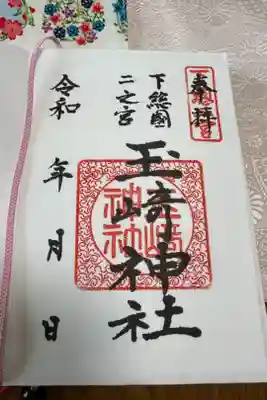 奉拝
下総國
二之宮
玉﨑神社
令和 年 月 日